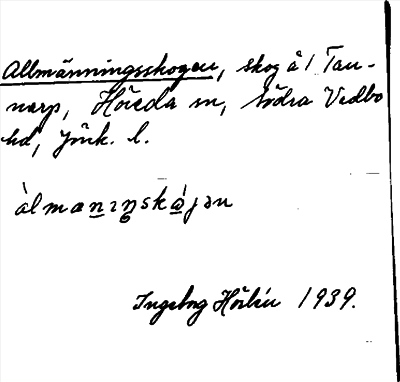 Allmänningsskogen, skog å 1 Tan-
narp, Höreda sn, Södra Vedbo
hd, Jönk. l.
àlmanıŋskájən
Ingeborg 1939.